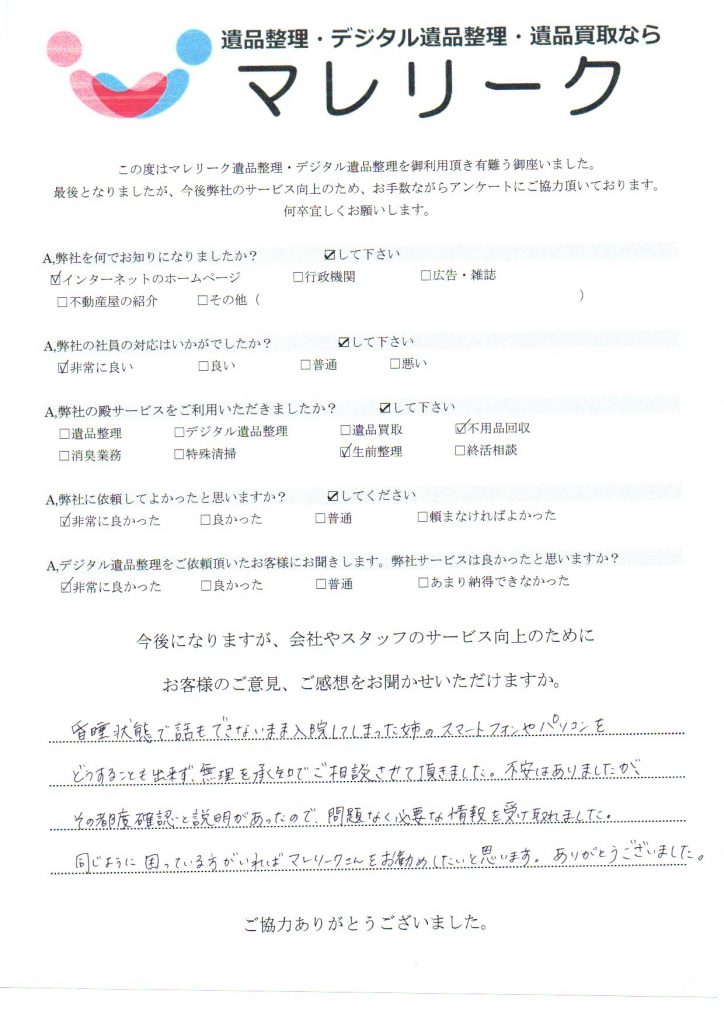 遺品整理・デジタル遺品整理・遺品買取なら
マレリーク
この度はマレリーク遺品整理・デジタル遺品整理を御利用頂き有難う御座いました。
最後となりましたが、今後弊社のサービス向上のため、お手数ながらアンケートにご協力頂いております。
何卒宜しくお願いします。
A,弊社を何でお知りになりましたか？ ☑して下さい
☑インターネットのホームページ □行政機関 □広告・雑誌
□不動産屋の紹介 □その他（ ）
A,弊社の社員の対応はいかがでしたか？ ☑して下さい
☑非常に良い □良い □普通 □悪い
A,弊社の殿サービスをご利用いただきましたか？ ☑して下さい
□遺品整理 □デジタル遺品整理 □遺品買取 ☑不用品回収
□消臭業務 □特殊清掃 ☑生前整理 □終活相談
A,弊社に依頼してよかったと思いますか？ ☑してください
☑非常に良かった □良かった □普通 □頼まなければよかった
A,デジタル遺品整理をご依頼頂いたお客様にお聞きします。弊社サービスは良かったと思いますか？
☑非常に良かった □良かった □普通 □あまり納得できなかった
今後になりますが、会社やスタッフのサービス向上のために
お客様のご意見、ご感想をお聞かせいただけますか。
昏睡状態で話もできないまま入院してしまった姉のスマートフォンやパソコンを
どうすることも出来ず、無理を承知でご相談させて頂きました。不安はありましたが、
その都度確認と説明があったので、問題なく必要な情報を受け取れました。
同じように困っている方がいればマレリークさんをお勧めしたいと思います。ありがとうございました。
ご協力ありがとうございました。